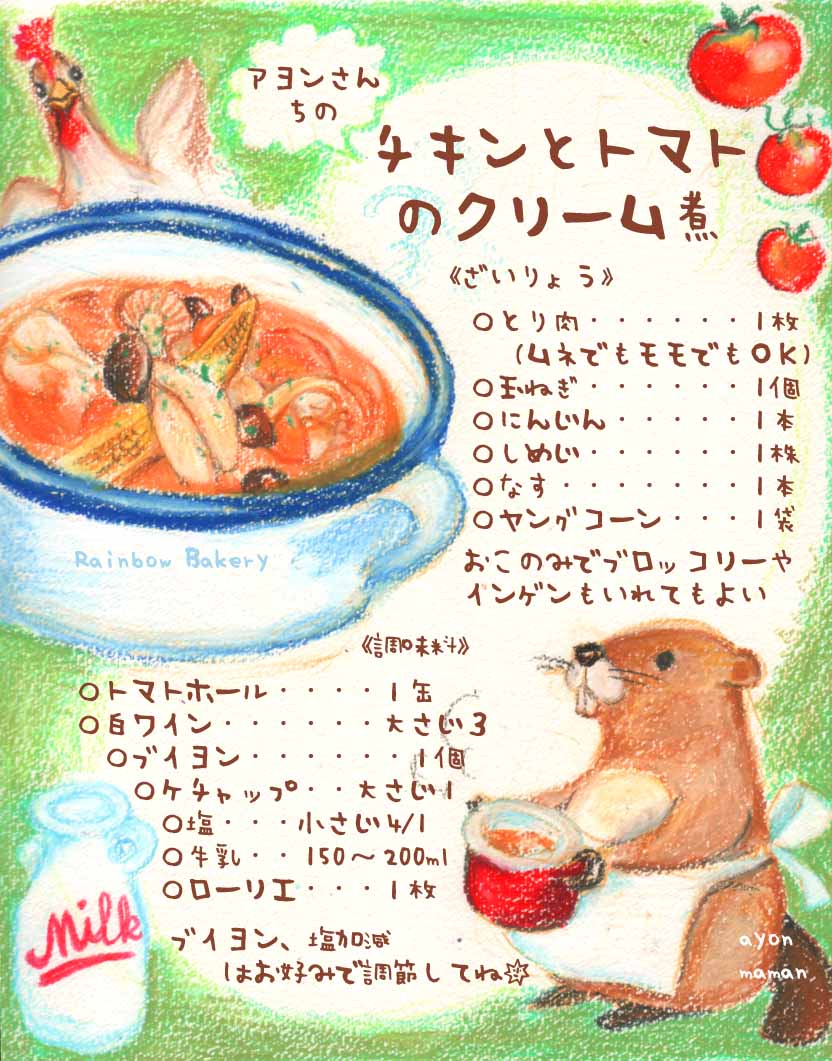 アヨンさん
ちの
チキンとトマト
のクリーム煮
《ざいりょう》
○とり肉・・・・・・1枚
(ムネでもモモでもOK)
○玉ねぎ・・・・・・1個
○にんじん・・・・・1本
○しめじ・・・・・・1株
○なす・・・・・・・1本
○ヤングコーン・・・1袋
おこのみでブロッコリーや
インゲンもいれてもよい
Rainbow Bakery
《調味料》
○トマトホール・・・・1缶
○白ワイン・・・・・・大さじ3
○ブイヨン・・・・・・1個
○ケチャップ・・大さじ1
○塩・・・小さじ4/1
○牛乳・・150〜200ml
○ローリエ・・・1枚
ブイヨン、塩加減
はお好みで調節してね☆
Milk
ayon
maman